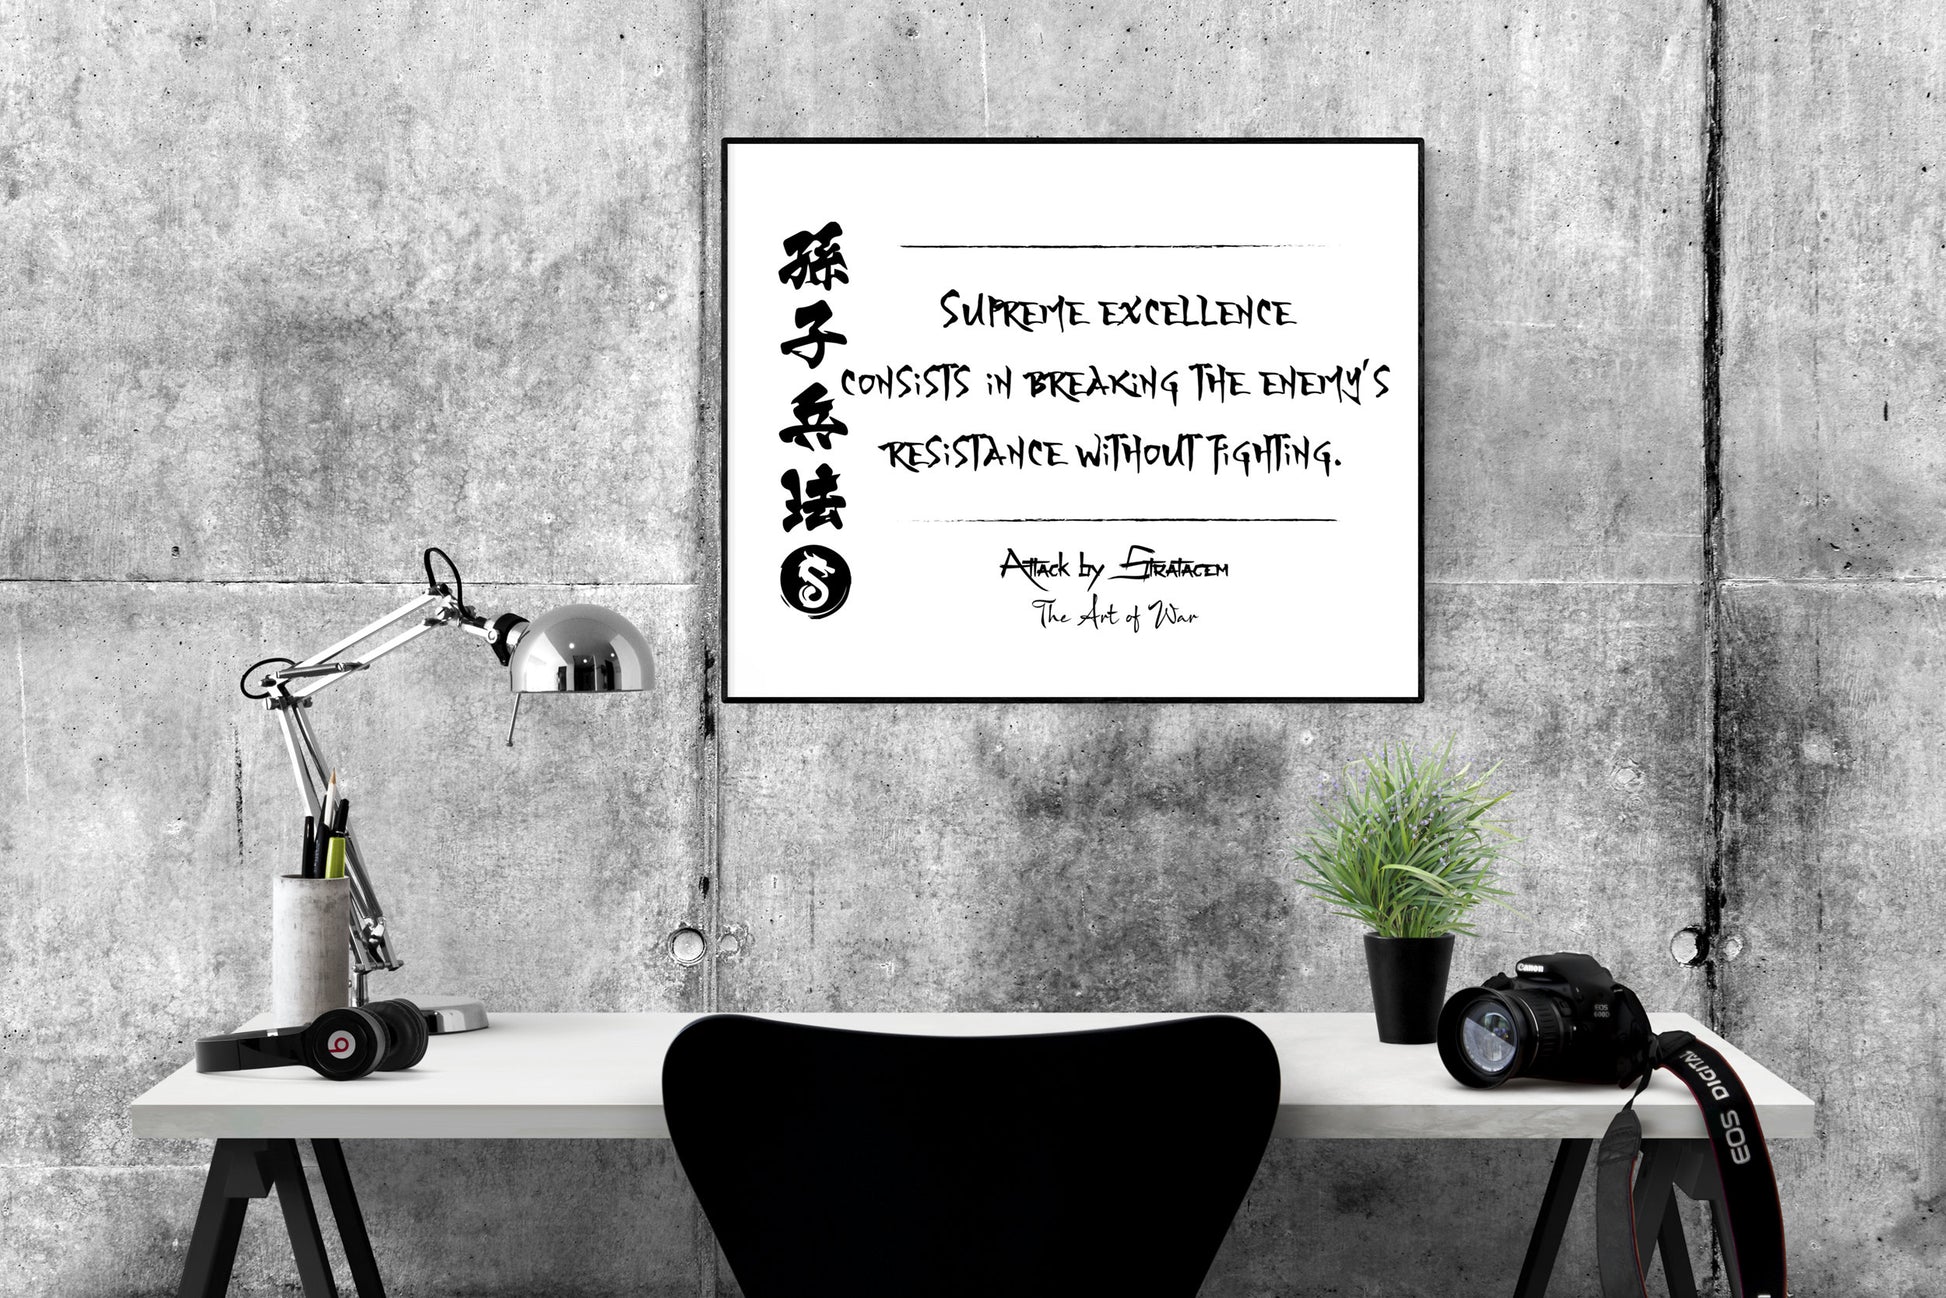 孫子兵法
SUPREME EXCELLENCE
CONSISTS IN BREAKING THE ENEMY'S
RESISTANCE WITHOUT FIGHTING.
Attack by Stratagem
The Art of War
Canon
EOS
600D
EOS DIGITAL
b